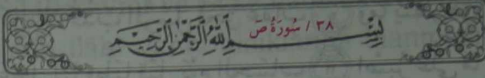 ٣٨ / سُورَةُ صٓ
بِسْمِ اللَّهِ الرَّحْمَٰنِ الرَّحِيمِ